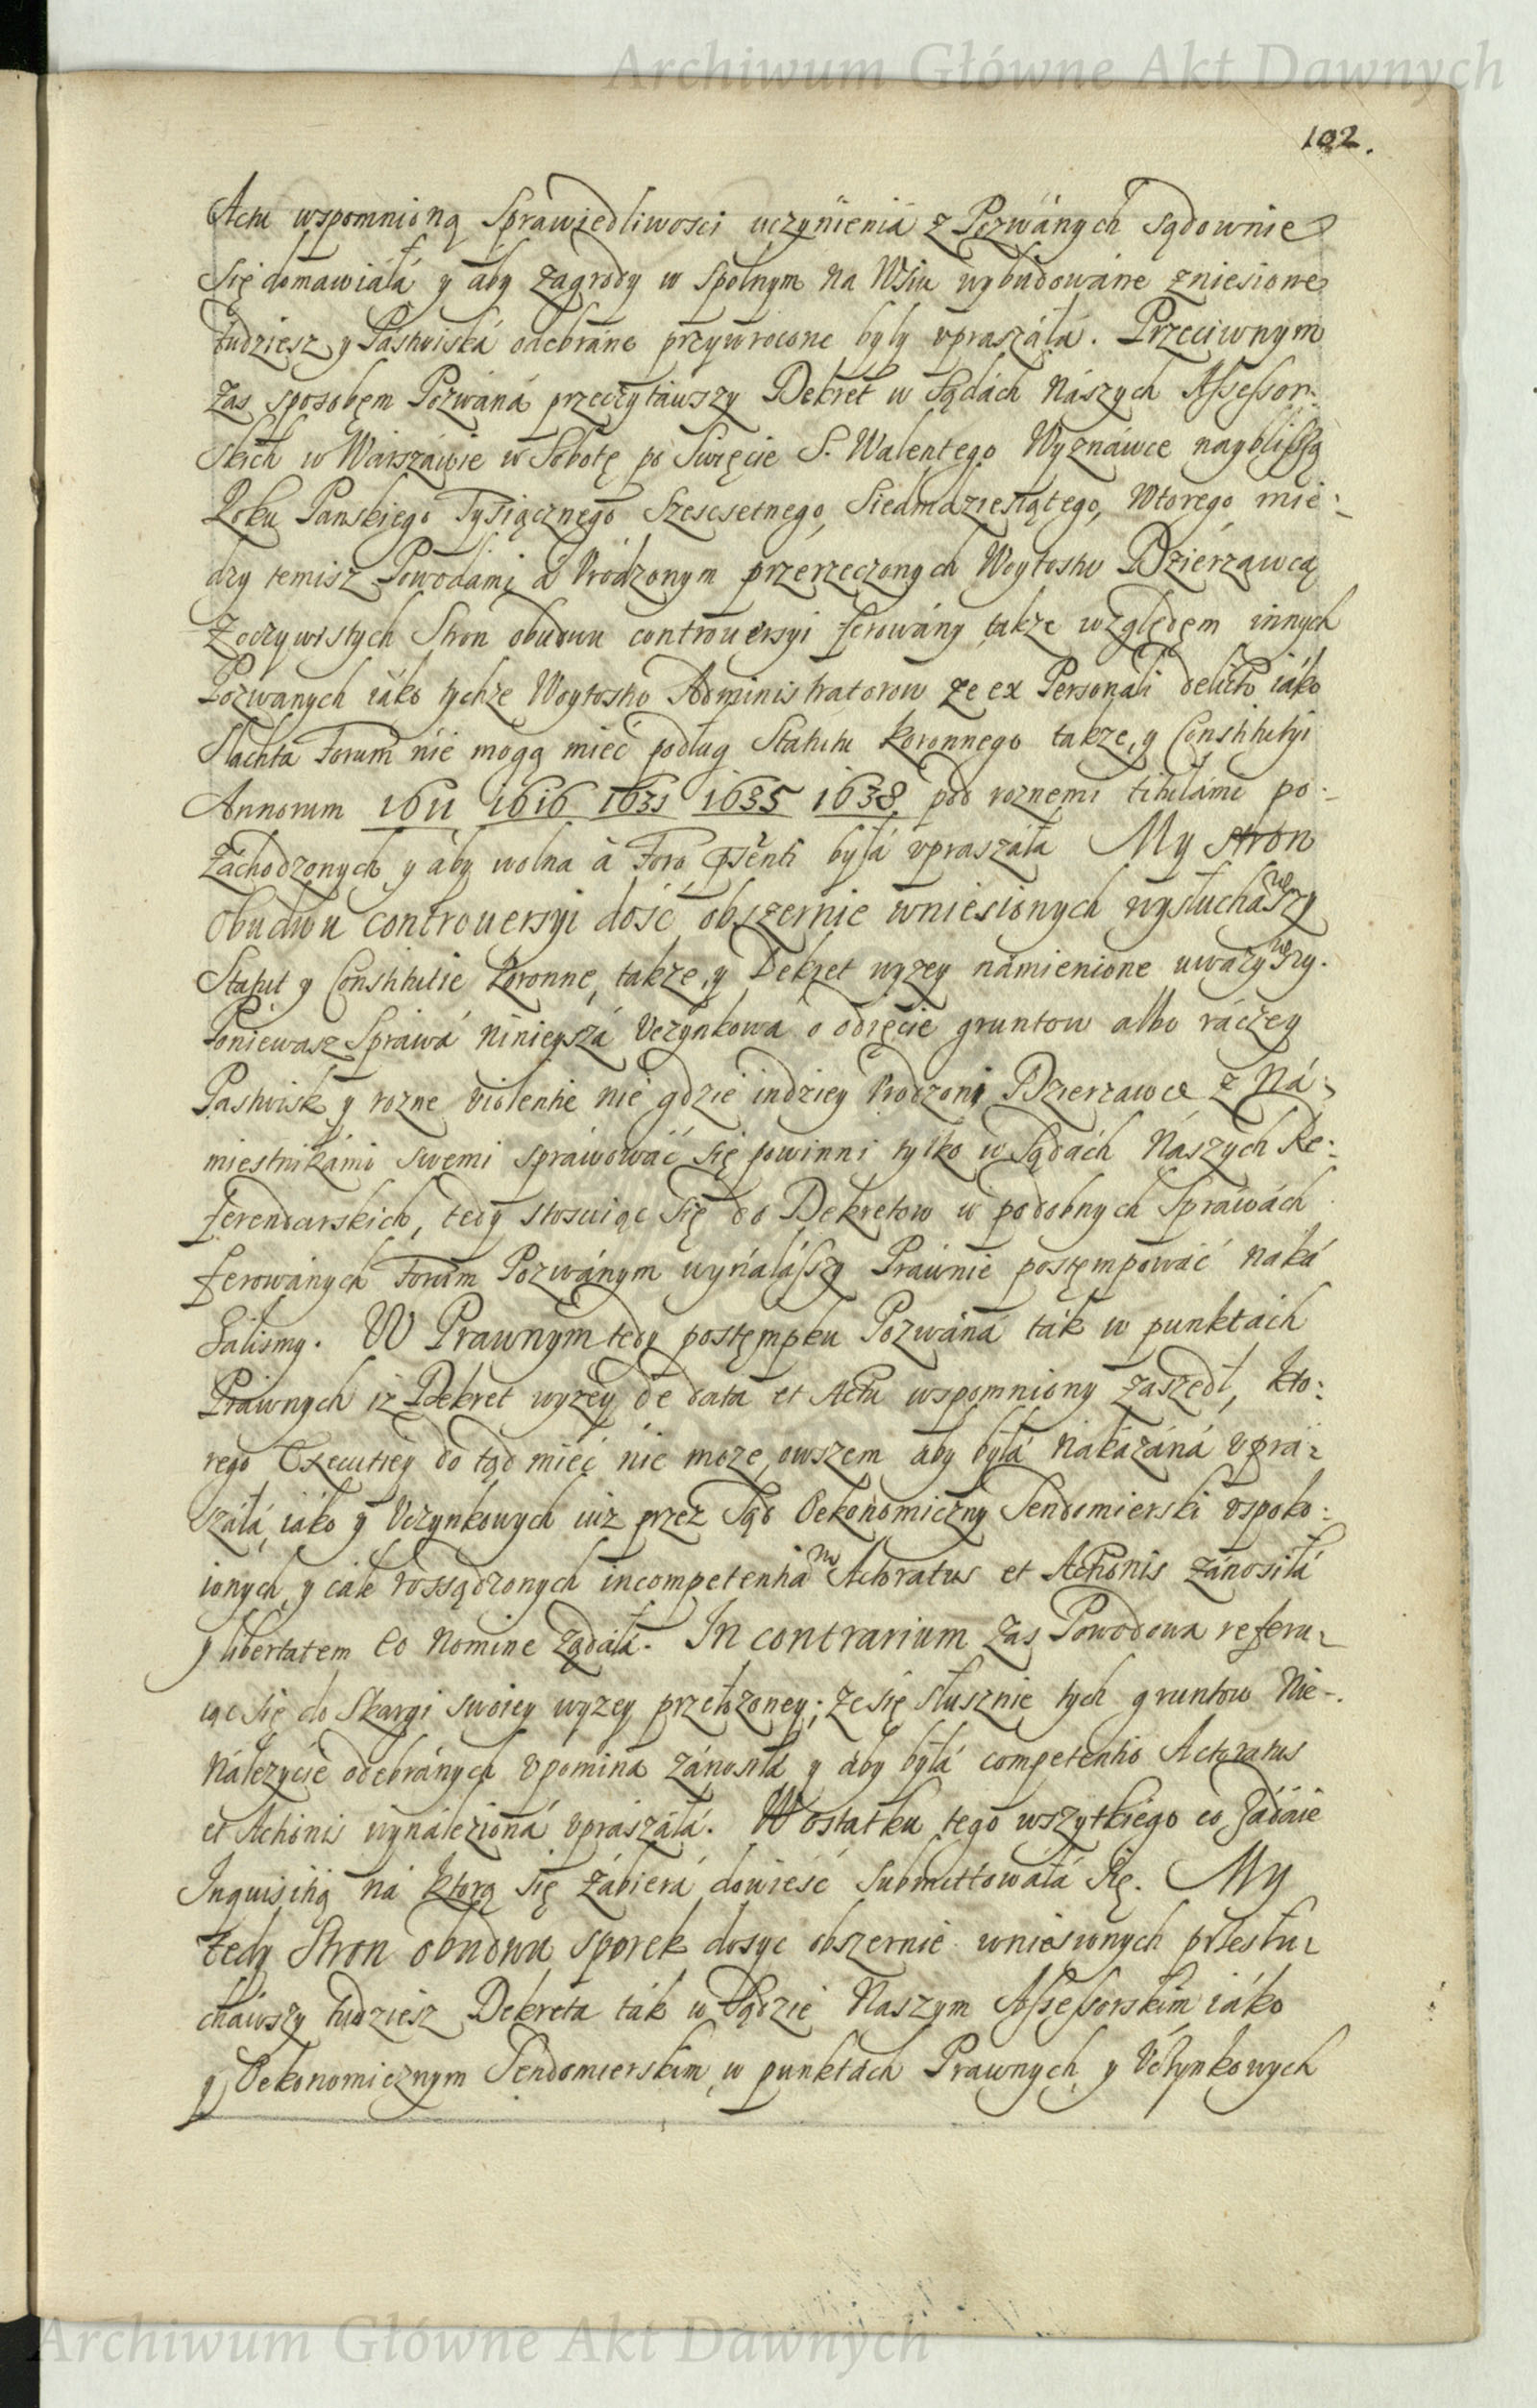 Archiwum Główne Akt Dawnych
102.
Actu wspomnioną Sprawiedliwosci uczynienia z Pozwánych sądownie
się domawiáłá y aby zagrody w spolnym na Wsiu wybudowáne zniesione
tudziesz y Pastwiská odebráne przywrocone były vpraszáłá. Przeciwnym
zas sposobęm Pozwáná przeczytáwszy Dekret w Sądách Nászych Assessor:
skich w Warszáwie w Sobotę po Swięcie S. Walentego Wyznáwce nayblisszą
Roku Panskiego Tysiącznego Szescsetnego, Siedmdziesiątego, Wtorego mie:
dzy temisz Powodami á Vrodzonym przerzeczonych Woytostw Dzierzawcą
z oczywistych Stron obudwu controuersyi ferowány także względęm innych
Pozwanych iáko tychże Woytostw Administratorow ze ex Personali delicto iáko
Slachta Forum nie mogą mieć podług Statutu Koronnego takze, y Constitutyi
Annorum 1611 1616 1631 1635 1638 pod roznemi titulámi po-
záchodzonych y áby wolna à Foro pñti byłá vpraszáłá My stron
obudwu controuersyi dość obszernie wniesionych wysłuchawszy
Statut y Constitutie Koronne, takze, y Dekret wyzey námienione uwazywszy.
Poniewasz Spráwá ninieyszá Vczynkowa o odięcie gruntow albo ráczey
Pastwisk y rozne violentie nie gdzie indziey Vrodzoni Dzierzawce z Ná:
miestnikámi swemi spráwowáć się powinni tylko w Sądách Nászych Re:
ferendarskich, tedy stosuiąc się do Dekretow w podobnych Spráwách
ferowánych Forum Pozwánym wynálászy Práwnie postęmpowáć naká
zálismy. W Prawnym tedy postęmpku Pozwáná ták w punktách
Práwnych iż Dekret wyzey de data et Actu wspomniony zaszedł, kto:
rego Exekutiey do tąd mieć nie moze, owszem aby byłá nakázáná vprá-
száłá, iáko y Vczynkowych iuz przez Sąd Oekonomiczny Sendomierski vspoko:
ionych, y cále rossądzonych incompetentiam Actoratus et Actionis zánosiłá
y libertatem eo Nomine ządáłá. In contrarium zas Powodowa referu-
iąc się do Skargi swoiey wyzey przełozoney; ze się słusznie tych gruntow Nie-
Nálezycie odebránych vpomina zánosiłá y áby byłá competentio Actoratus
et Actionis wynáleziona vpraszáłá. W ostatku tego wszytkiego co Ządáie
Inquisitią ná ktorą się zábierá dowieść submittowáłá się. My
tedy Stron obudwu sporek dosyc obszernie wniesionych przesłu-
cháwszy tudziesz Dekreta ták w Sądzie Naszym Assessorskim iáko
y Oekonomicznym Sendomierskim, w punktách Prawnych y Vczynkowych
Archiwum Główne Akt Dawnych